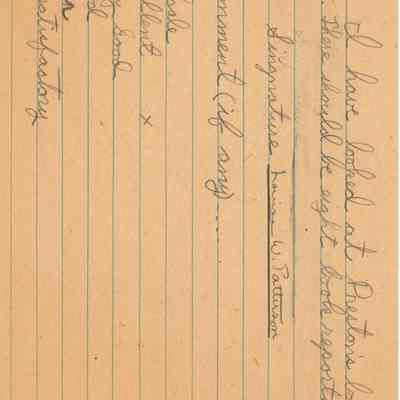 I have looked at Preston's
There should be eight book report
Singnature Louise W. Patterson
mment (if any)......
ale
ellent x
y Good
d
r
atisfactory